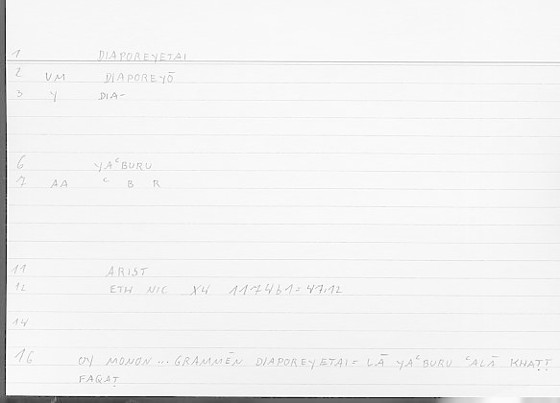 1 DIAPOREYETAI
2 VM DIAPOREYŌ
3 Y DIA-
6 YAʿBURU
7 AA ʿ B R
11 ARIST
12 ETH NIC X4 1174b1=47,12
14
16 OY MONON ... GRAMMĒN DIAPOREYETAI = LĀ YAʿBURU ʿALĀ KHAṬṬ
FAQAṬ